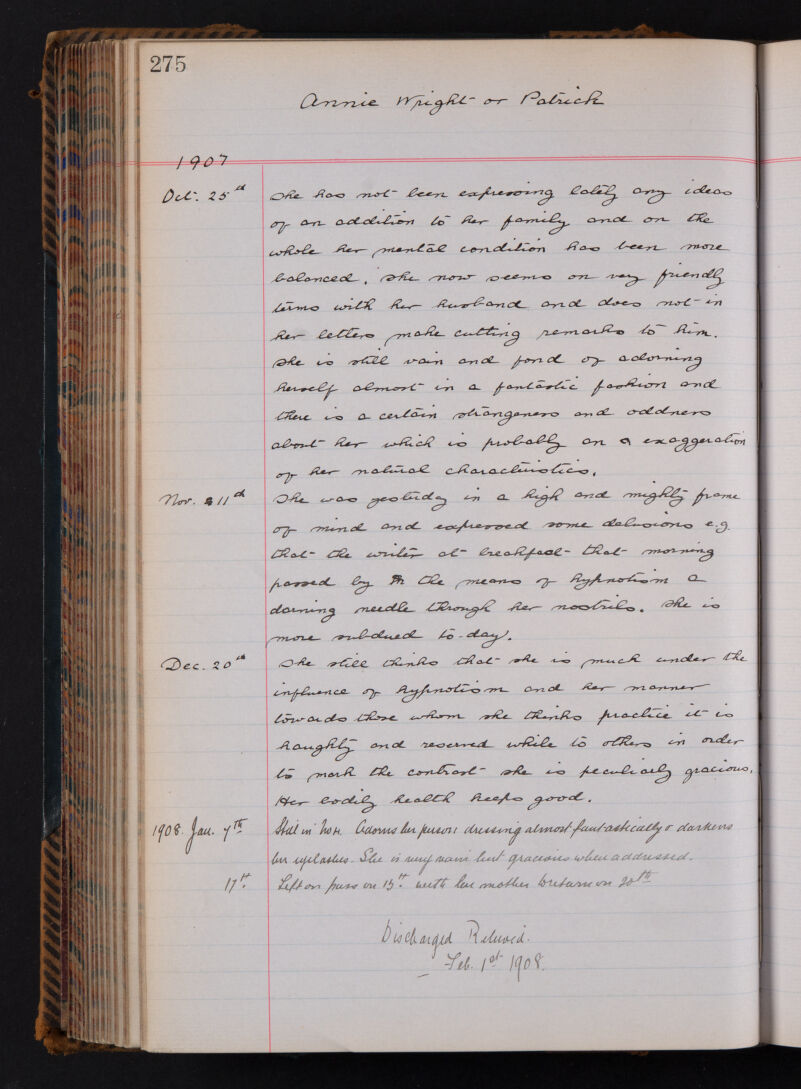 275
Annie Wright or Patrick
1907
Oct. 25th She has not been expressing lately any ideas
of an addition to her family and on the
whole her mental condition has been more
balanced. She now seems on very friendly
terms with her husband and does not in
her letters make cutting remarks to him.
She is still vain and fond of adorning
herself almost in a fantastic fashion and
there is a certain strangeness and oddness
about her which is probably an a exaggeration
of her natural characteristics.
Nov. 11th She was yesterday in a high and mighty frame
of mind and expressed some delusions e.g.
that the writer at breakfast that morning
passed by the means of hypnotism a
darning needle through her nostrils. She is
more subdued to-day.
Dec. 20th She still thinks that she is much under the
influence of hypnotism and her manner
towards those whom she thinks practice it is
haughty and reserved while to others in order
to mark the contrast she is peculiarly gracious.
Her bodily health keeps good.
1908. Jan. 7th Still in Adorns her person dressing almost fantastically & darkens
her eyelashes. She is very vain but gracious when addressed.
17th. Left on pass on 15th. with her mother to return on 20th
Discharged Relieved.
Feb. 1st 1908.